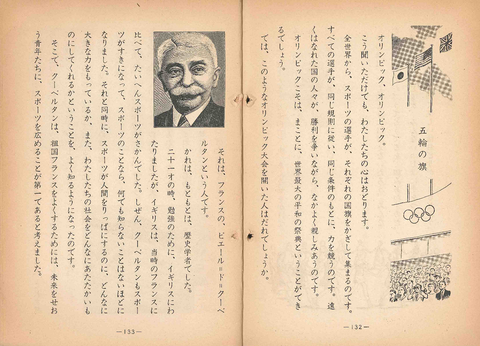 五輪の旗
オリンピック、オリンピック。
こう聞いただけでも、わたしたちの心はおどります。
全世界から、スポーツの選手が、それぞれの国旗をかざして集まるのです。
すべての選手が、同じ規則に従い、同じ条件のもとに、力を競うのです。遠
くはなれた国の人々が、勝利を争いながら、なかよく親しみあうのです。
オリンピックこそは、まことに、世界最大の平和の祭典ということができ
るでしょう。
では、このようなオリンピック大会を開いた人はだれでしょうか。
—132—
それは、フランスの、ピエール＝ド＝クーベ
ルタンという人です。
かれは、もともとは、歴史学者でした。
二十一才の時、勉強のために、イギリスにわ
たりましたが、イギリスは、当時のフランスに
比べて、たいへんスポーツがさかんでした。しぜん、クーベルタンもスポー
ツがすきになって、スポーツのことなら、何でも知らないことはないほどに
なりました。それと同時に、スポーツが人間をりっぱにするのに、どんなに
大きな力をもっているか、また、わたしたちの社会をどんなにあたたかいも
のにしてくれるかということを、よく知るようになったのです。
そこで、クーベルタンは、祖国フランスをよくするためには、未来をせお
う青年たちに、スポーツを広めることが第一であると考えました。
—133—